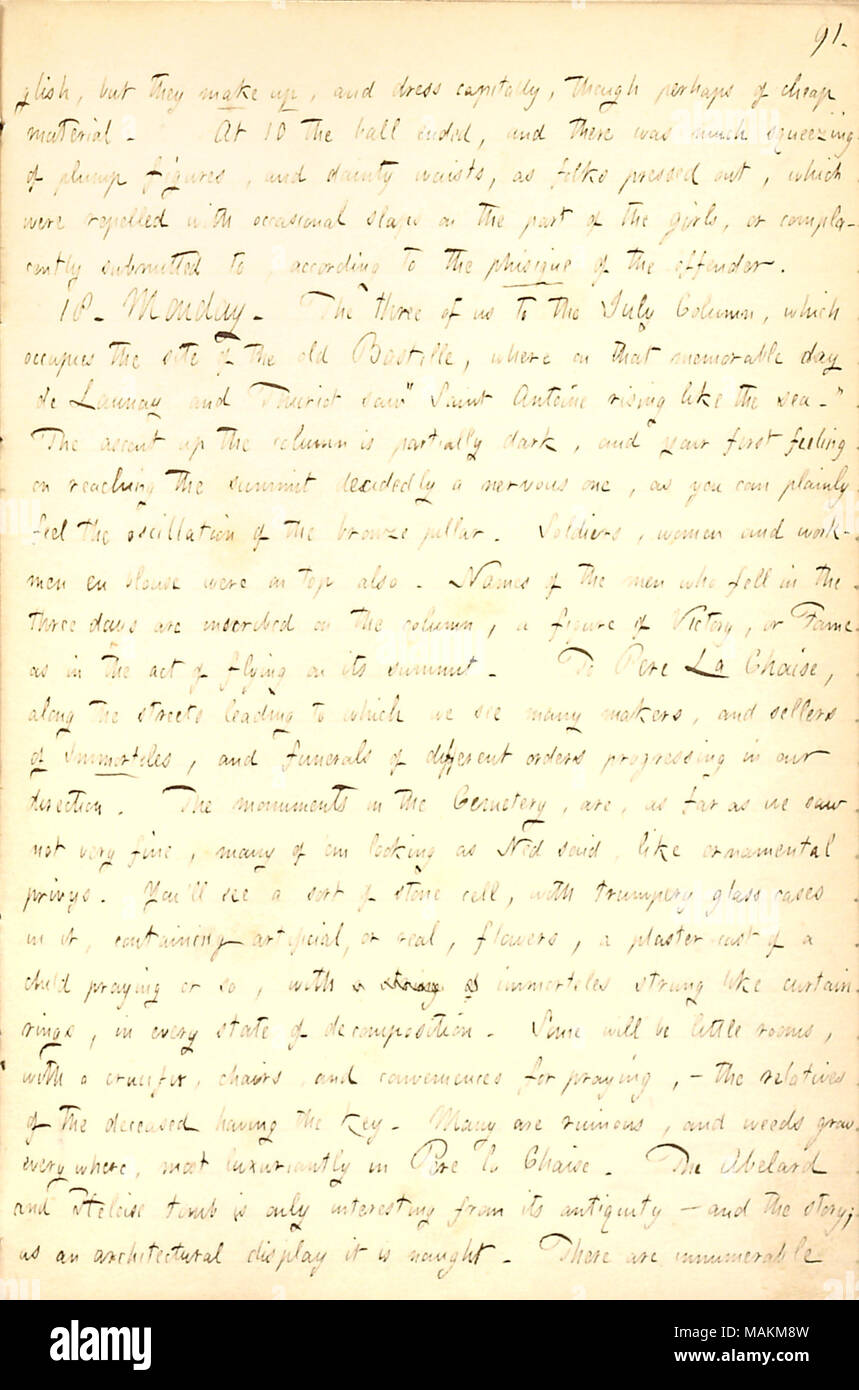 91.
glish, but they make up, and dress capitally, though perhaps of cheap
material. At 10 the ball ended, and there was much squeezing
of plump figures, and dainty waists, as folks pressed out, which
were repelled with occasional slaps on the part of the girls, or compla-
cently submitted to, according to the phisique of the offender.
18. Monday. The three of us to the July Column, which
occupies the site of the old Bastille, where on that memorable day
de Launay and Thuriot saw "Saint Antoine rising like the sea."
The ascent up the column is partially dark, and your first feeling
on reaching the summit decidedly a nervous one, as you can plainly
feel the oscillation of the bronze pillar. Soldiers, women and work-
men en blouse were on top also. Names of the men who fell in the
three days are inscribed on the column, a figure of Victory, or Fame
as in the act of flying on its summit. To Pere La Chaise,
along the streets leading to which we see many makers, and sellers
of Immortiles, and funerals of different orders progressing in our
direction. The monuments in the Cemetery, are, as far as we saw
not very fine, many of em looking as Ned said, like ornamental
privys. You'll see a sort of stone cell, with trumpery glass cases
in it, containing artificial, or real, flowers, a plaster cast of a
child praying or so, with immorteles strung like curtain
rings, in every state of decomposition. Some will be little rooms,
with a crucifix, chairs, and conveniences for praying, - the relatives
of the deceased having the key. Many are ruinous, and weeds grow
every where, most luxuriantly in Pere La Chaise. The Abelard
and Heloise tomb is only interesting from its antiquity - and the story;
as an architectural display it is naught. There are innumerable
alamy
Image ID: MAKM8W
www.alamy.com